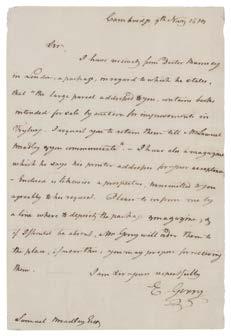 Cambridge 9th Novr 18
Sir
I have received from Doctor
in London, a package, in regard to which he states,
that "the large parcel addressed to you, contains books
intended for sale by auction for improvements in
I request you to return them till Mr Samuel
Bradley upon communicate". I have also a magazine
which he says his printer addresses for your acceptance
Enclosed is likewise a prospectus, transmitted you
agreeably to his request. Please to inform me by
a line where to deposit the package & magazine, & if
if I should be absent, Mrs Gerry will order them to
the place, if more than, you may propose for receiving
them.
I am Sir yours respectfully
E. Gerry
Samuel Bradley Esqr